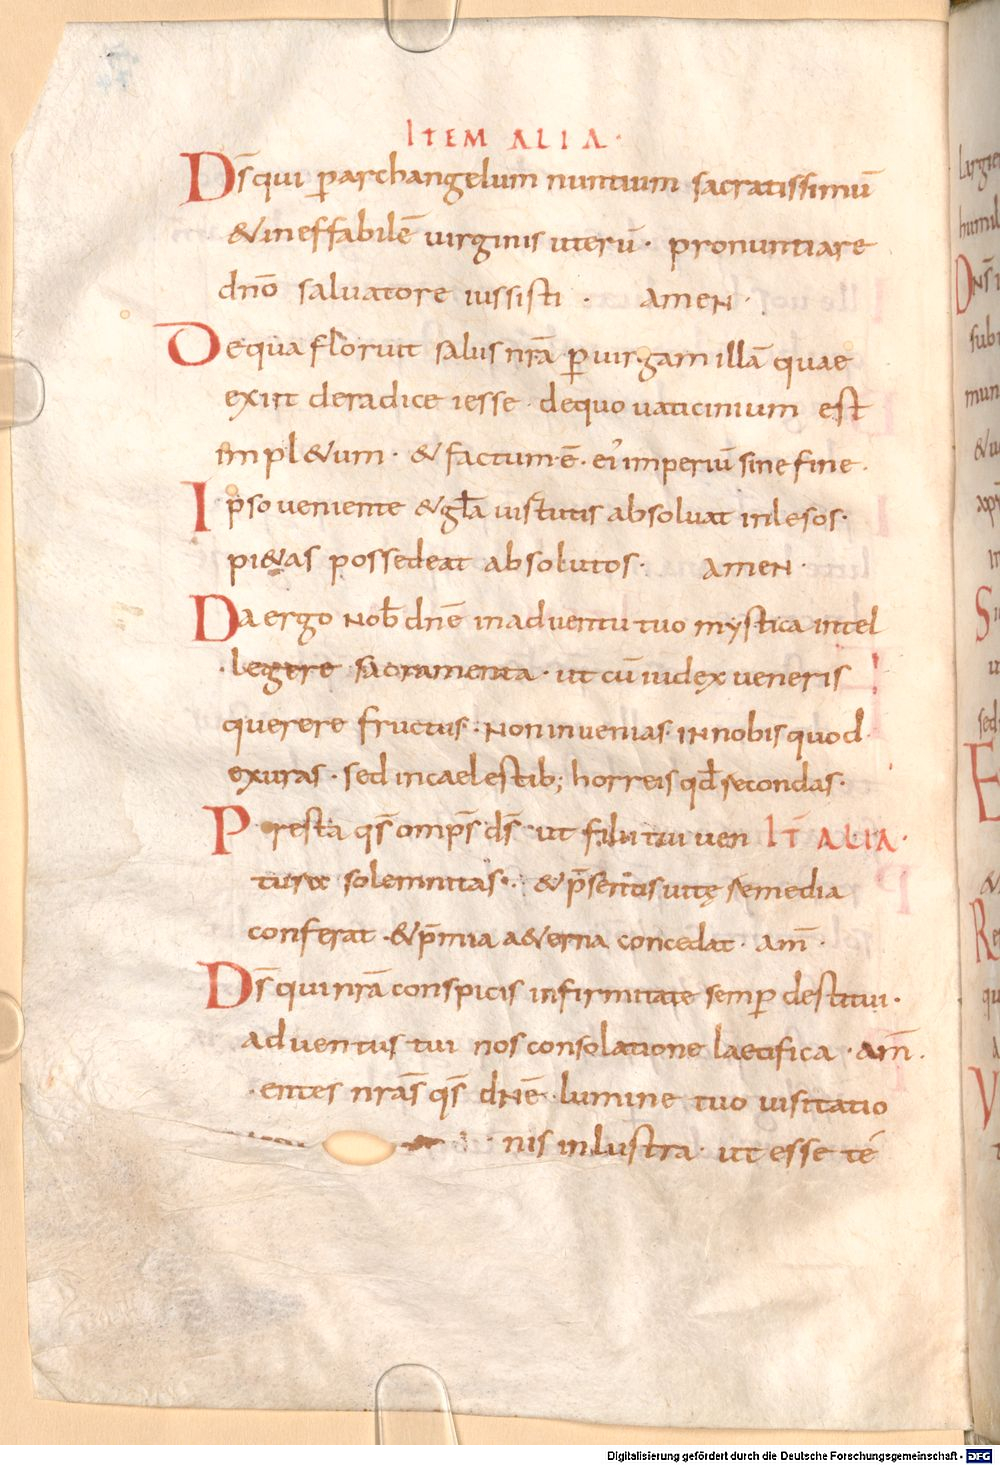 ITEM ALIA·
Ds̄ qui p̱archangelum nuntium sacratissimū
& ineffabilē virginis uterū· pronuntiare
dn̄o salvatore iussisti · AMEN·
Dequa floruit salus nr̄a p̱ uirgam illā quae
exiit deradice iesse· dequo uaticinium est
impl&um· & factum·ē· ei' imperiū sine fine·
Ipso ueniente & gl̄a uirtutis absoluat inlesos·
pi&as possedeat absolutos· AMEN·
Da ergo nob̄ dn̄e inaduentu tuo mystica intel
·legere sacramenta· ut cū iudex ueneris
querere fructus· Non inuenias· IN nobis quod
exuras· sed in caelestib; horreis qd̄ recondas·
Presta qs̄ omps̄ ds̄ ut filii tui uen IT̄ ALIA·
ture solemnitas· & p̄sentis uitę remedia
conferat· & p̄mia a&erna concedat· am̄·
Ds̄ qui nr̄a conspicis infirmitate semp̱ destitui·
aduentus tui nos consolatione laetifica· am̄·
·entes nr̄as qs̄ dNē· lumine tuo uisitatio
nis inlustra· ut esse te
largie
humil
DNs̄ i
subi
mun
sed
Digitalisierung gefördert durch die Deutsche Forschungsgemeinschaft - DFG